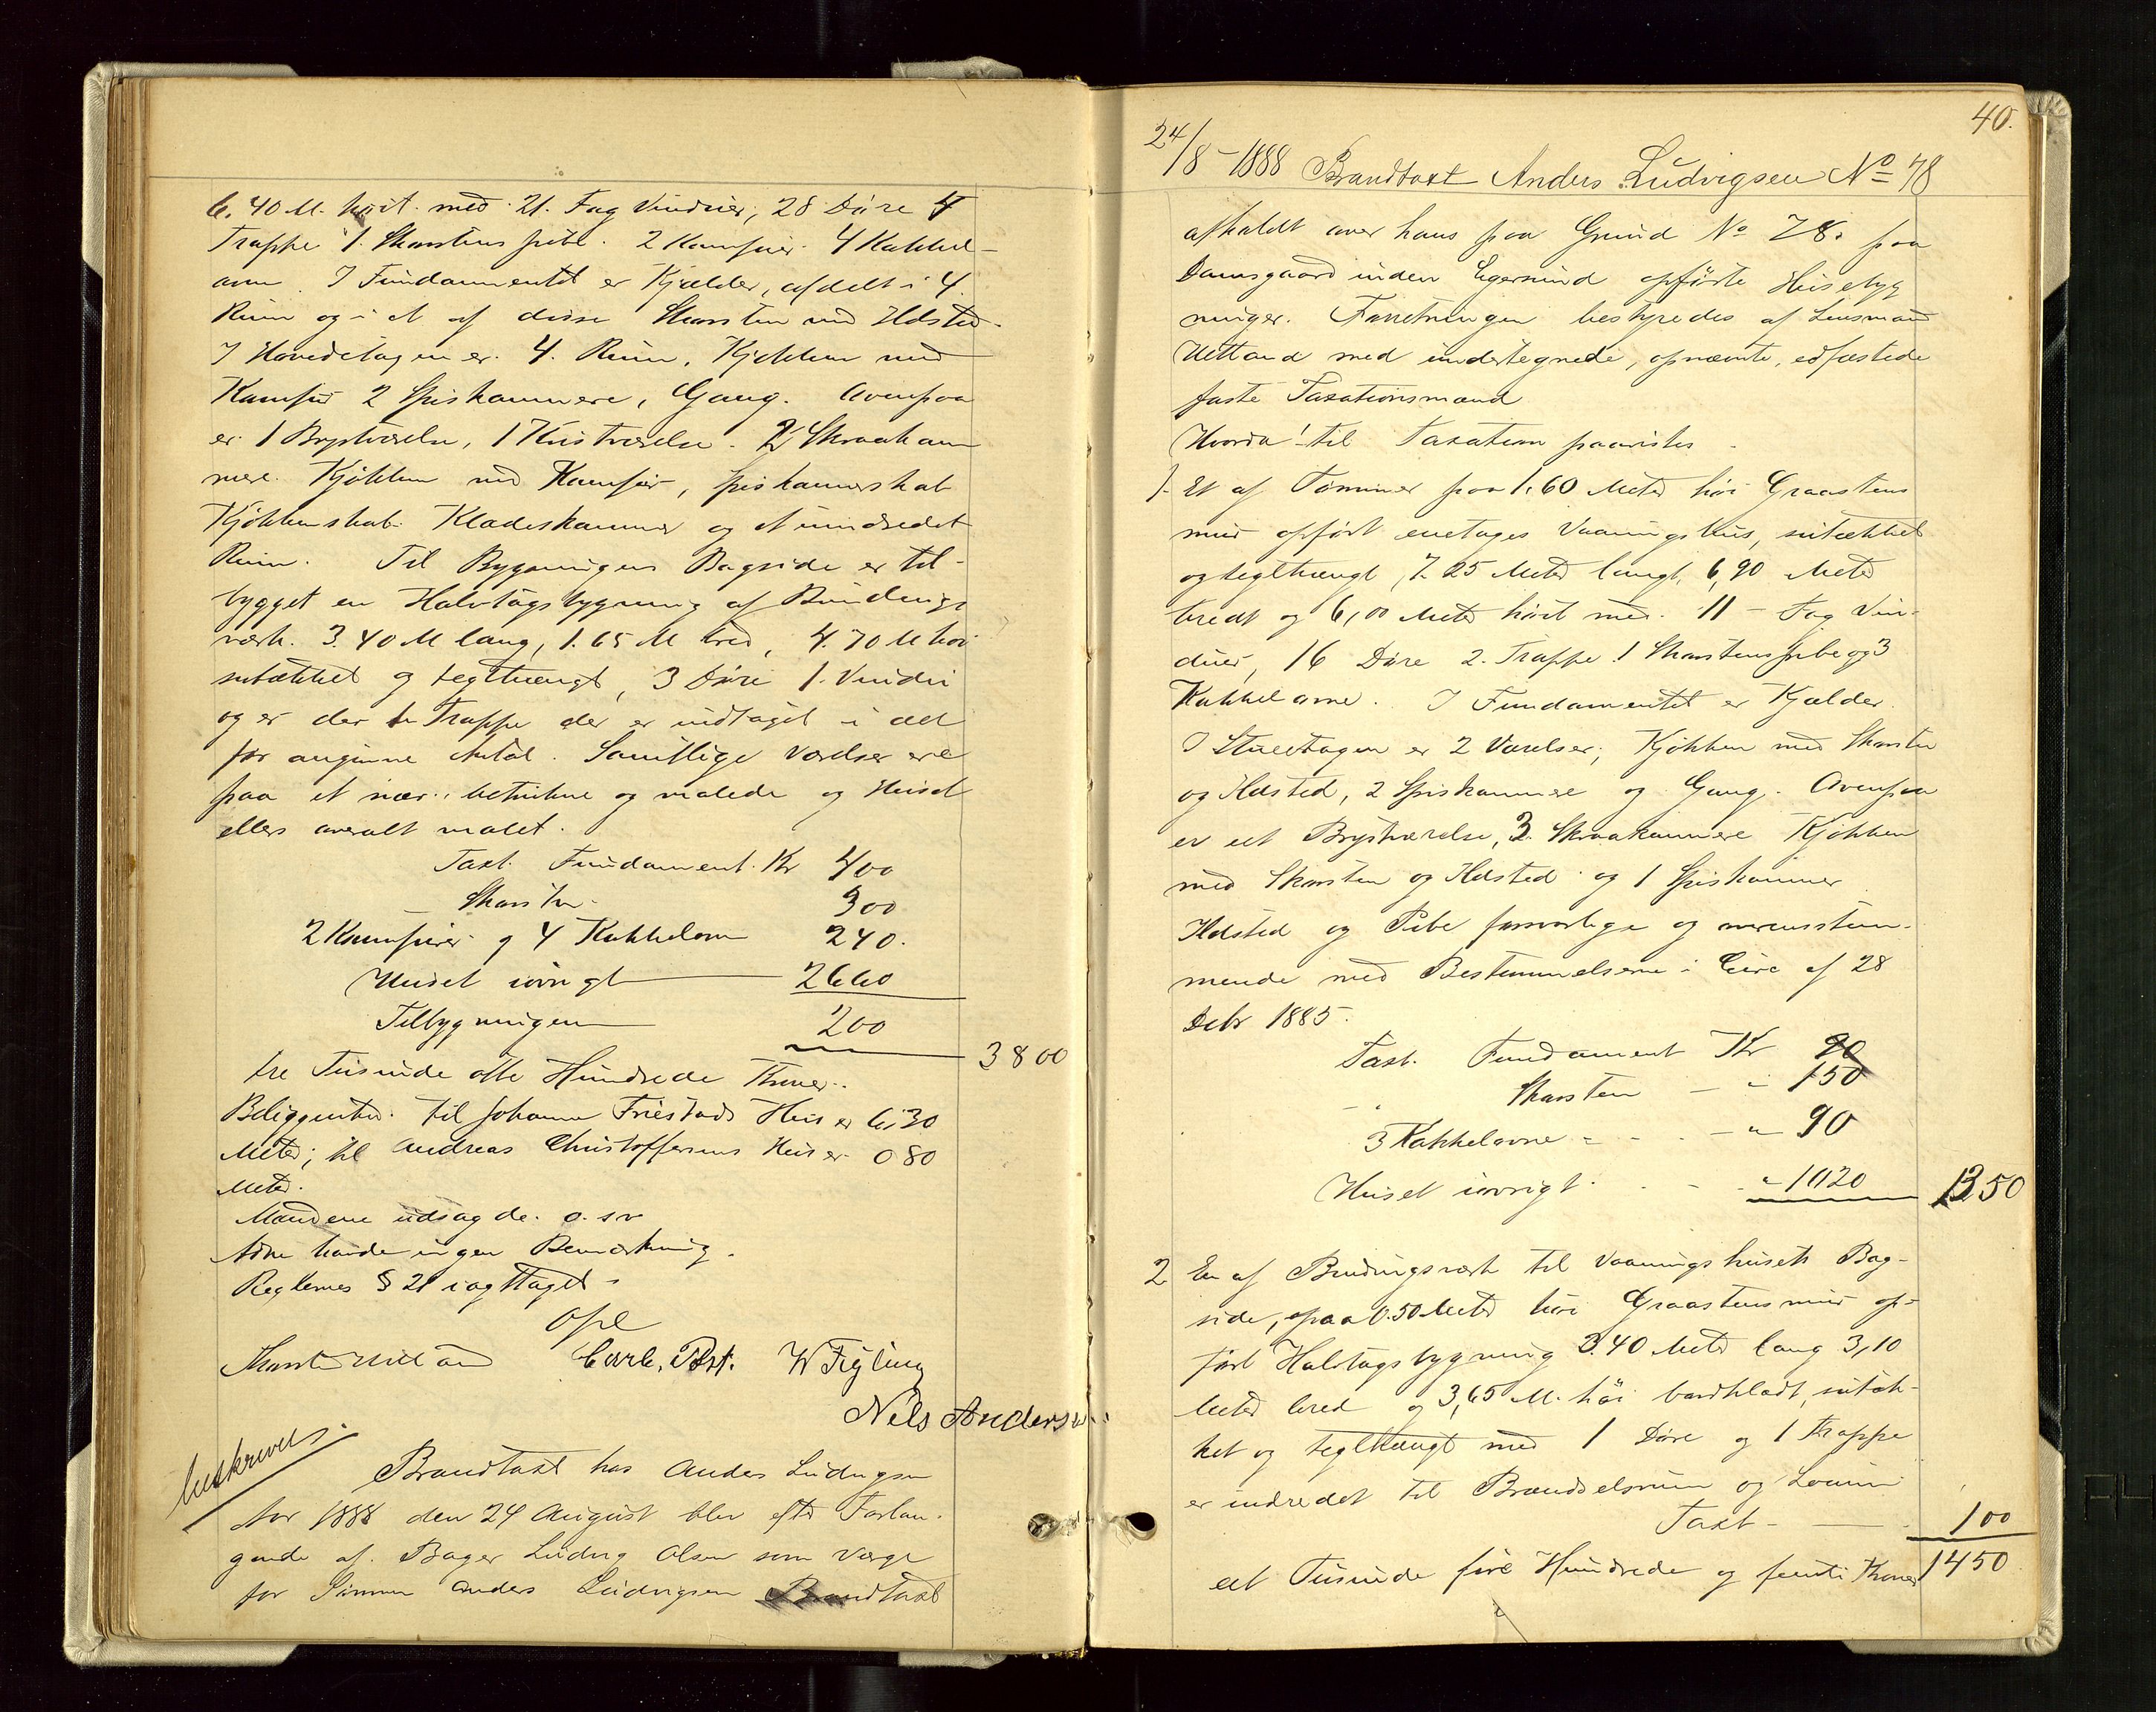 6.40 M. høit med 21. Fag Vinduer, 28 Døre 4
Trappe 1. Skorstens pibe. 2 Komfuir. 4 Kakkel-
ovne. I Fundamentet er Kjælder, afdelt i 4
Rum og i et af disse Skorsten med Ildsted.
I Hovedetagen er 4. Rum, Kjøkken med
Komfur 2 Spiskammere, Gang. Ovenpaa
er 1 Brystværelse, 1 Kvistværelse. 2 Skraakam
mere. Kjøkken med Komfur, spiskammerskab
Kjøkkenskab. Klædeskammer og et uindredet
Rum. Til Bygningens Bagside er til-
bygget en Halvtagsbygning af Bindings
værk. 3.40 M lang, 1.65 M bred, 4.70 M høi
sutækket og teglhængt, 3 Døre 1. Vindu
og er der Trappe der er indtaget i det
før angivne Antal. Samtlige Værelser ere
paa et nær betrukne og malede og Huset
ellers overalt malet.
Taxt. Fundament. Kr 400
Skorsten 300
2 Komfuirer og 4 Kakkelovne 240.
Huset iøvrigt 2660
Tilbygningen 200
3800
tre Tusinde otte Hundrede Kroner..
Beliggenhed. Til Johanne Friestads Hus er 6,30
Meter; til Andreas Christoffersens Hus er 0 80
Meter.
Mændene udsagde. o. s v
Adne havde ingen Bemærkning.
Reglernes § 21 iagttaget.
Opl
Carl. Post. W Figling
Nils Andersen
beskreves.
Brandtaxt hos Anders Ludvigsen
Aar 1888 den 24 August blev efter Forlan-
gende af Bager Ludvig Olsen som Værge
for Sønnen Anders Ludvigsen Brandtaxt
40.
24/8-1888 Brandtaxt Anders Ludvigsen No 78
afholdt over hans paa Grund No 78. paa
Damsgaard inden Egersund opførte Husebyg
ninger. Forretningen bestyredes af Lensmand
Hetland med undertegnede, opnævnte, edfæstede
faste Taxationsmænd
Hvorda! til Taxation paavistes.
1. Et af Tømmer paa 1,60 Meter høi Graastens
mur opført enetages Vaaningshus, sutækket
og teglhængt, 7.25 Meter langt, 6,90 Meter
bredt og 6,00 Meter høit med 11 - Fag Vin-
duer, 16 Døre 2. Trappe 1 Skorstenspibe og 3
Kakkelovne. I Fundamentet er Kjælder.
I Stueetagen er 2 Værelser, Kjøkken med Skorsten
og Ildsted, 2 Spiskammere og Gang. Ovenpaa
er et Brystværelse, 3. Skraakammere Kjøkken
med Skorsten og Ildsted og 1 Spiskammer.
Ildsted og Pibe forsvarlige og overensstem-
mende med Bestemmelserne i Circ af 28
Debr 1885.
Taxt. Fundament Kr 90
Skorsten - " 150
3 Kakkelovne - " 90
Huset iøvrigt. - " 1020 1350
2 En af Bindingsværk til Vaaningshusets Bag-
side, paa 0.50 Meter høi Graastensmur op-
ført Halvtagsbygning 3.40 Meter lang 3,10
Meter bred og 3,65 M. høi bordklædt, sutæk-
ket og teglhængt med 1 Døre og 1 Trappe
er indredet til Brændselsrum og Lokum
Taxt - 100
et Tusinde fire Hundrede og femti Kroner 1450